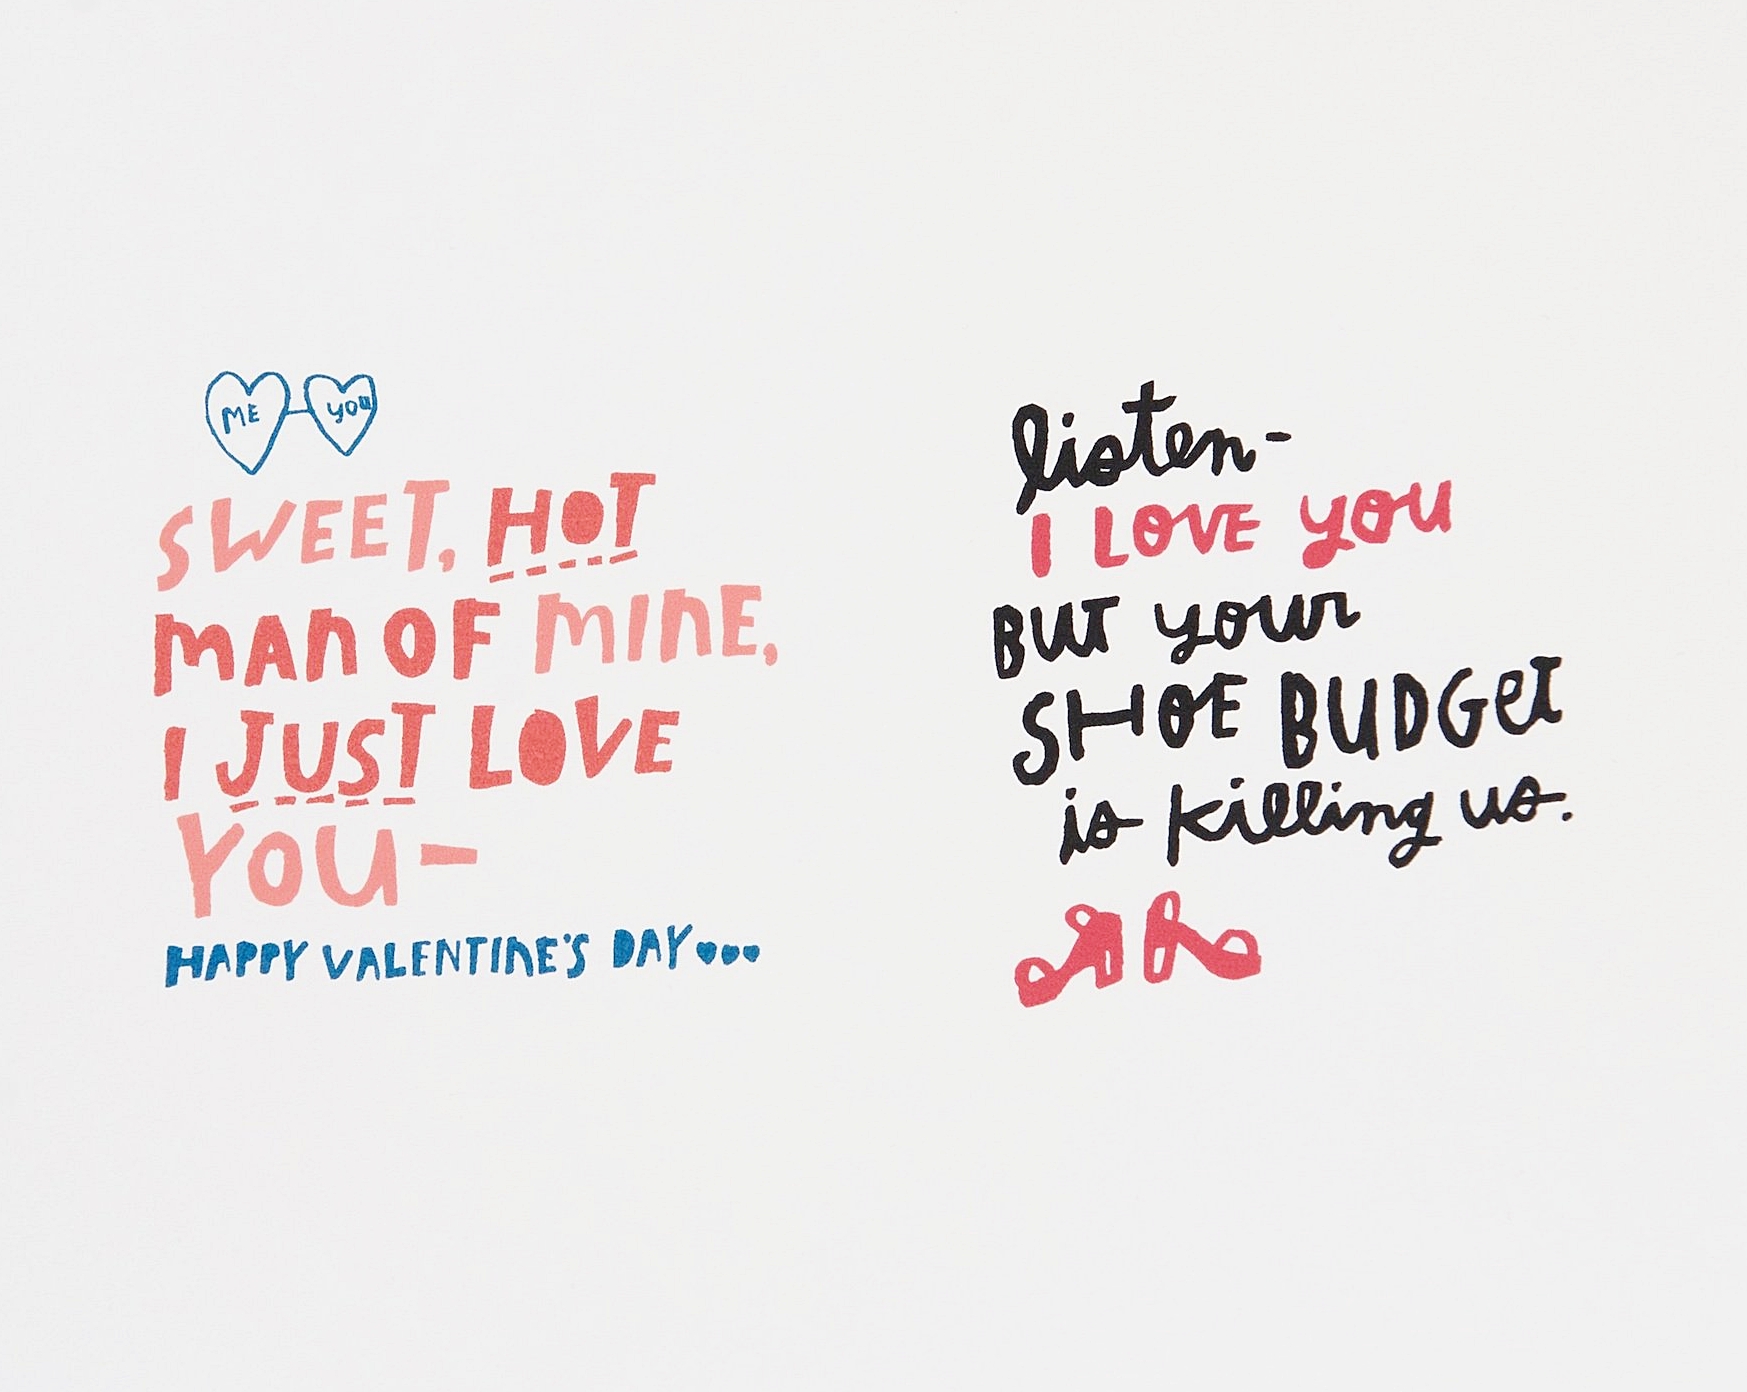 ME YOU
SWEET, HOT
MAN OF MINE,
I JUST LOVE
YOU—
HAPPY VALENTINE'S DAY
listen-
I LOVE YOU
BUT your
SHOE BUDGET
is killing us.